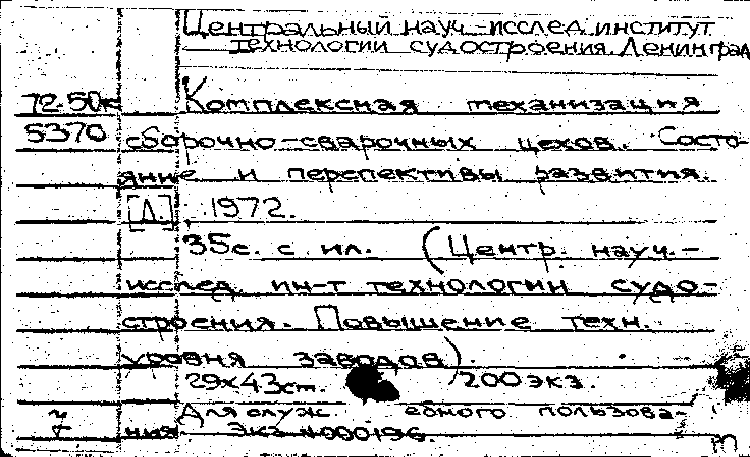 Центральный науч.-исслед. институт
технологии судостроения. Ленинград
72-50к Комплексная механизация
5370 сборочно-сварочных цехов. Состо-
яние и перспективы развития.
[Л.], 1972.
35с. с ил. (Центр. науч.-
исслед. ин-т технологии судо-
строения. Повышение техн.
уровня заводов).
29х43см. 1200 экз.
Для служебного пользова-
ния. Экз №000196.